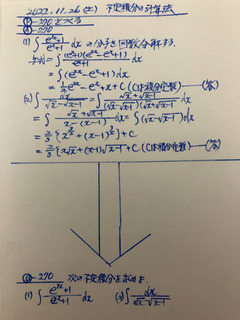 2022.11.26(土) 不定積分の計算法
(1) ∫ (e^{3x}+1)/(e^x+1) dx の分子を因数分解する.
(与式) = ∫ (e^x+1)(e^{2x}-e^x+1)/(e^x+1) dx
= ∫ (e^{2x}-e^x+1) dx
= 1/2 e^{2x} - e^x + x + C (Cは積分定数) —(答)
(2) ∫ dx/(√x-√(x-1)) = ∫ (√x+√(x-1))/((√x-√(x-1))(√x+√(x-1))) dx
= ∫ (√x+√(x-1))/(x-(x-1)) dx = ∫ (√x+√(x-1)) dx
= 2/3 {x^{3/2} + (x-1)^{3/2}} + C
= 2/3 {x√x + (x-1)√(x-1)} + C (Cは積分定数) —(答)
-290 次の不定積分を求めよ.
(1) ∫ (e^{3x}+1)/(e^x+1) dx (2) ∫ dx/(√x-√(x-1))